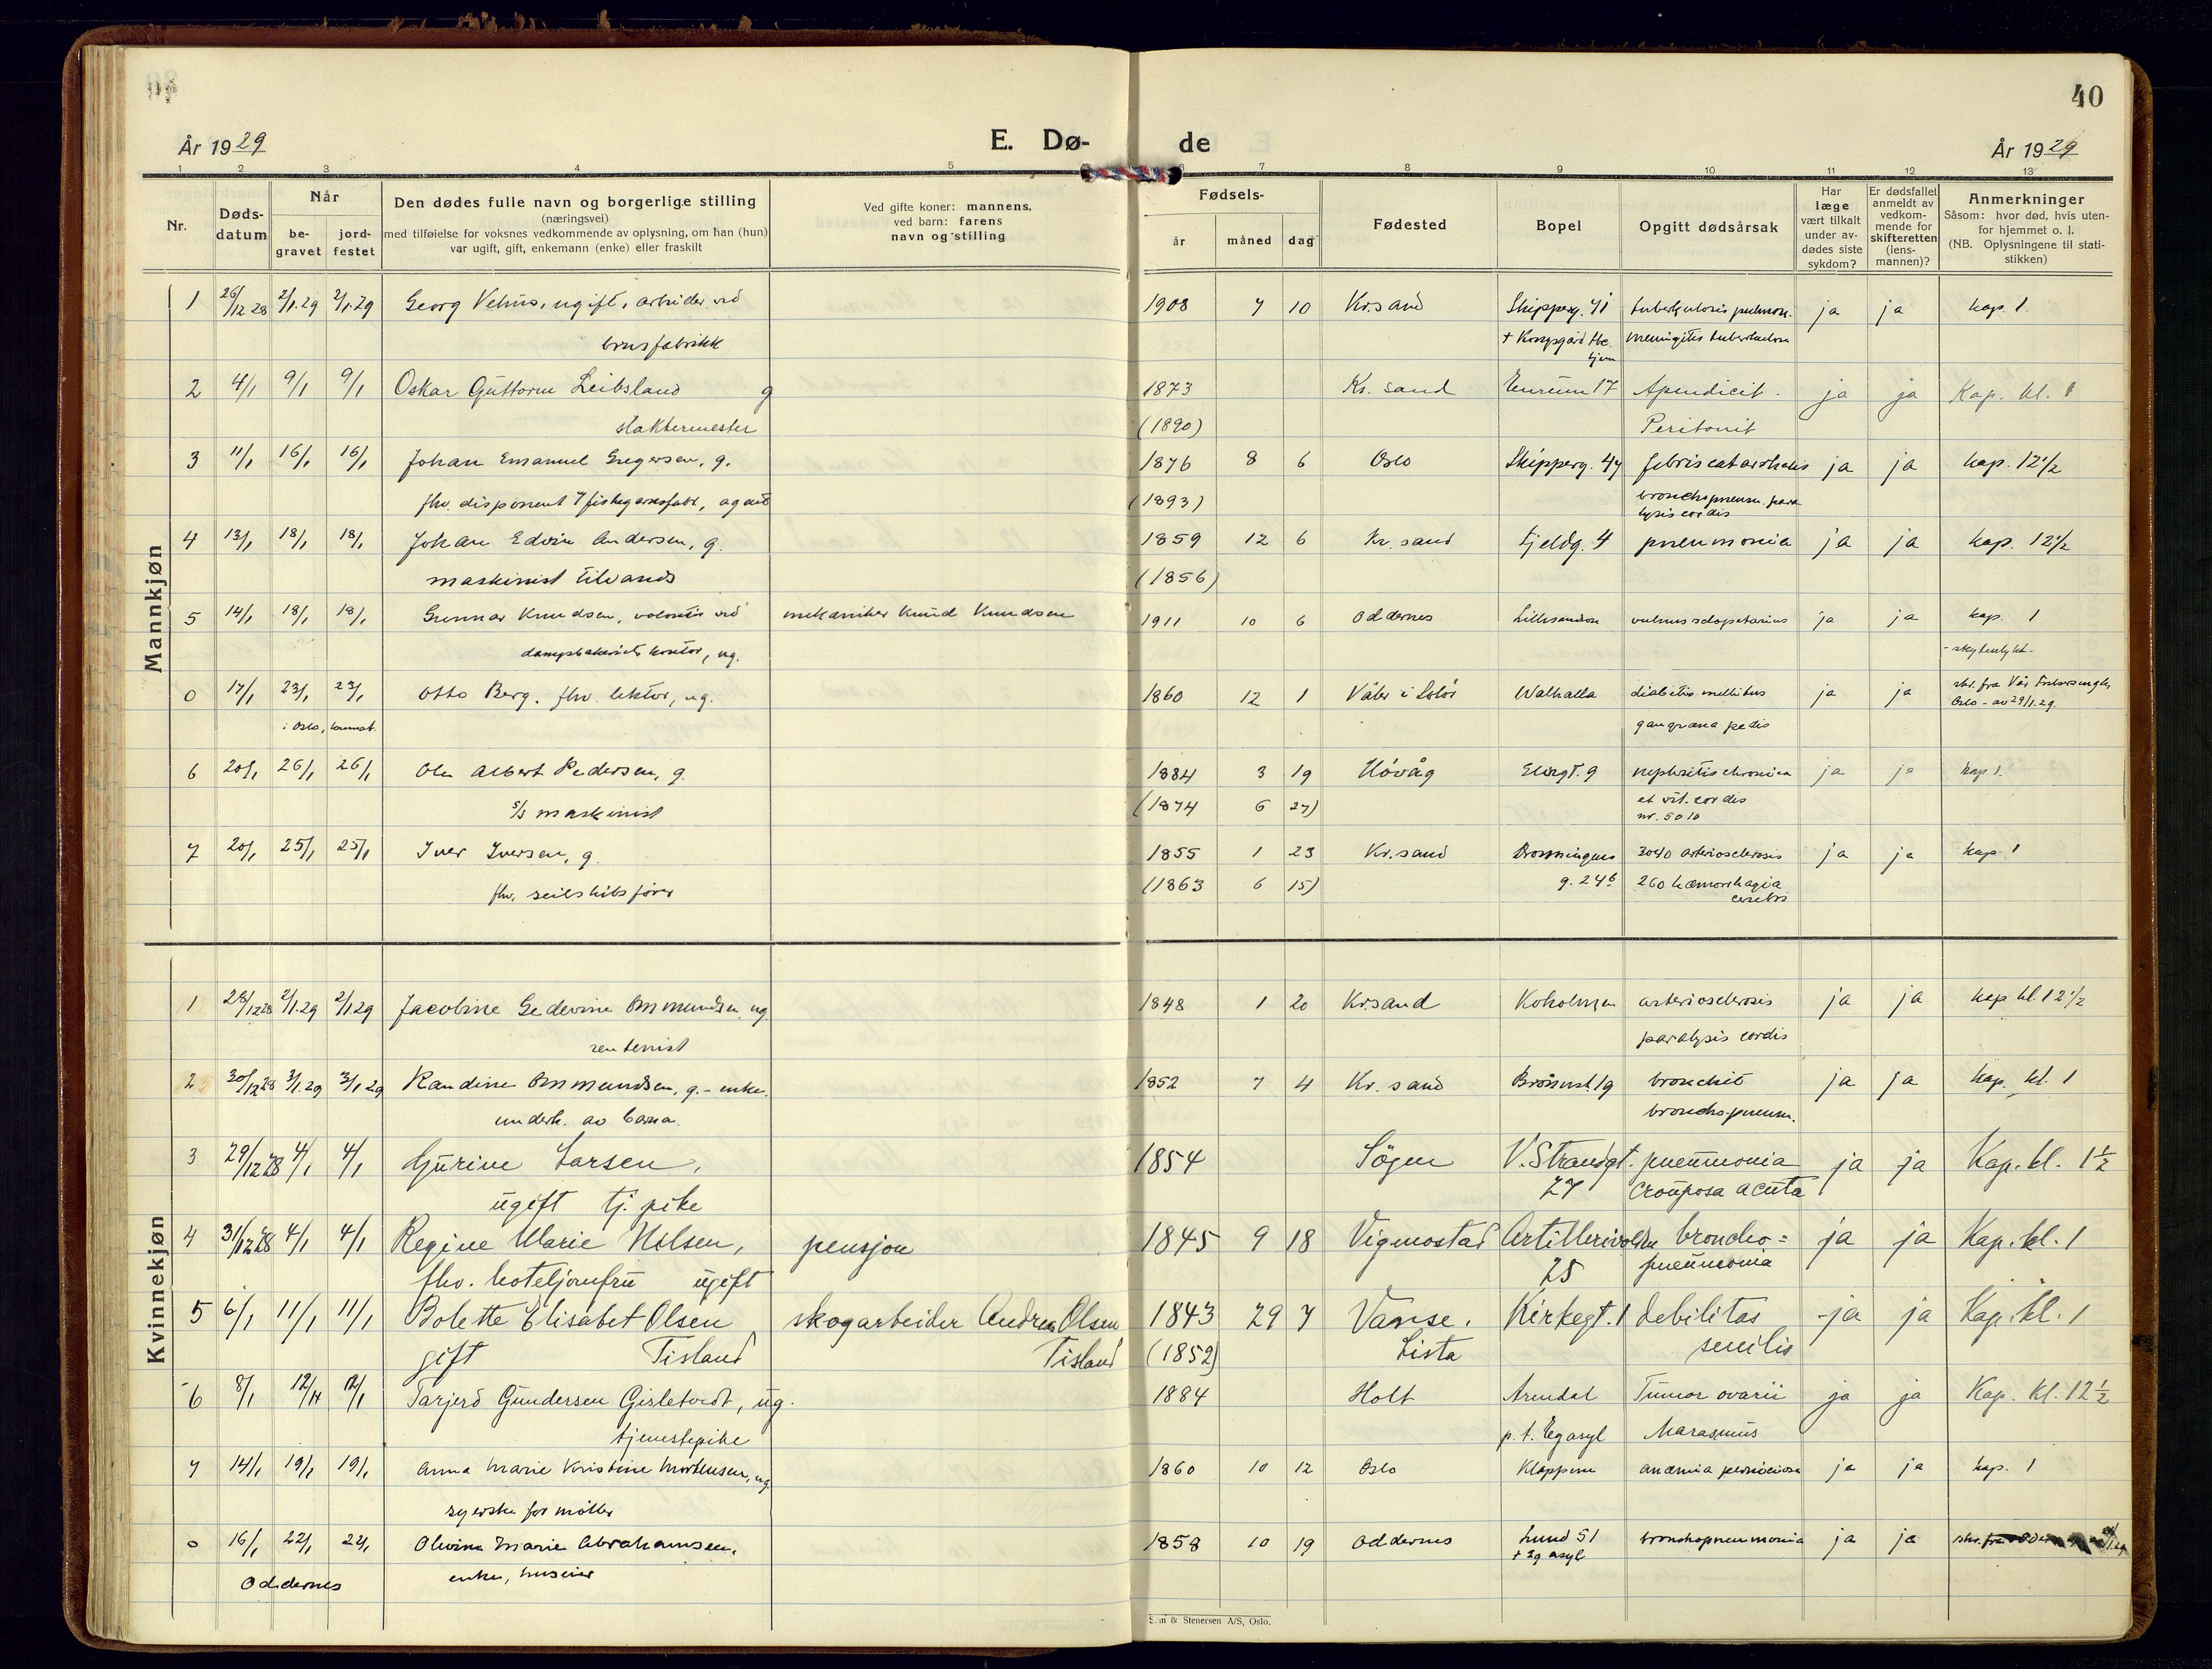 40
År 1929
E. Dø-
de
År 1929
1 2 3 4 5 6 7 8 9 10 11 12 13
Nr.
Døds-
datum
Når
be-
gravet
jord-
festet
Den dødes fulle navn og borgerlige stilling
(næringsvei)
med tilføielse for voksnes vedkommende av oplysning, om han (hun)
var ugift, gift, enkemann (enke) eller fraskilt
Ved gifte koner: mannens,
ved barn: farens
navn og stilling
Fødsels-
år måned dag
Fødested
Bopel
Opgitt dødsårsak
Har
læge
vært tilkalt
under av-
dødes siste
sykdom?
Er dødsfallet
anmeldt av
vedkom-
mende for
skifteretten
(lens-
mannen)?
Anmerkninger
Såsom: hvor død, hvis uten-
for hjemmet o. l.
(NB. Oplysningene til stati-
stikken)
Mannkjøn
1 26/12 28 2/1.29 2/1.29 Georg Vehus, ugift, arbeider ved 1908 7 10 Kr.sand Skipperg. 41 tuberkulosis pulmon. ja ja kap. 1.
brusfabrikk meningitis tuberkulosa
2 4/1 9/1 9/1 Oskar Guttorm Leibsland g 1873 Kr. sand 17 Apendicit. ja ja Kap. kl. 1
slaktermester (1890) Peritonit
3 11/1 16/1 16/1 Johan Emanuel Gregersen, g. 1876 8 6 Oslo Skipperg. 44 febris catarrhalis ja ja kap. 12 1/2
fhv. disponent agent (1893) bronchopneum. para
lysis cordis
4 13/1 18/1 18/1 Johan Edvin Andersen, g. 1859 12 6 Kr. sand Fjeldg. 4 pneumonia ja ja kap. 12 1/2
maskinist (1856)
5 14/1 18/1 18/1 Gunnar Knudsen, volontør ved mekaniker Knud Knudsen 1911 10 6 Oddernes vulnus sclopetarius ja ja kap. 1
kontor, ug.
0 17/1 23/1 23/1 Otto Berg. fhv. lektor, ug. 1860 12 1 Våler i Solør Walhalla diabetis mellitus ja ja skr. fra Vår
i Oslo, kremat. gangræna pedis Oslo - av 29/1.29.
6 20/1 26/1 26/1 Ole Albert Pedersen, g. 1884 3 19 Høvåg Elvegt. 9 nephritis chronica ja ja kap 1.
s/s maskinist (1874 6 27) et vit. cordis
nr. 50 10
7 20/1 25/1 25/1 Iver Iversen, g. 1855 1 23 Kr.sand Dronningens 3040 arteriosclerosis ja ja kap 1
fhv. seilskibsfører (1863 6 15) g. 24 b 260 hæmorrhagia
cerebri
Kvinnekjøn
1 28/12 28 2/1.29 2/1.29 Jacobine Gedevine Ommundsen, ug. 1848 1 20 Kr.sand Koholmen arteriosclerosis ja ja kap kl. 12 1/2
rentenist paralysis cordis
2 30/12 28 3/1.29 3/1 29 Randine Ommundsen, g. - enke. 1852 7 4 Kr. sand bronchit ja ja kap. kl. 1
underh. av barna. broncho-pneum.
3 29/12 28 4/1 4/1 Gurine Larsen, 1854 Søgne V. Strandgt. pneumonia ja ja Kap. kl. 1 1/2
ugift tj. pike 27 crouposa acuta
4 31/12 28 4/1 4/1 Regine Marie Nilsen, pensjon 1845 9 18 Vigmostad Artillerivolden broncho= ja ja Kap. kl. 1
fhv. hoteljomfru ugift 25 pneumonia
5 6/1 11/1 11/1 Bolette Elisabet Olsen skogarbeider Andreas Olsen 1843 29 7 Vanse. Kirkegt. 1 debilitas ja ja Kap. kl. 1
gift Tisland Tisland (1852) Lista senilis
6 8/1 12/1 12/1 Tarjerd Gundersen Gisletvedt, ug. 1884 Holt Arendal Tumor ovarii ja ja Kap. kl. 12 1/2
tjenestepike p. t. Egasyl Marasmus
7 14/1 19/1 19/1 Anna Marie Kristine Mortensen, ug 1860 10 12 Oslo Kloppene anæmia perniciosa ja ja kap. 1
syerske for møller
0 16/1 22/1 22/1 Olivine Marie Abrahamsen, 1858 10 19 Oddernes Lund 51 bronchopneumonia ja ja
Oddernes enke, huseier + Eg asyl
& Stenersen A/S, Oslo.